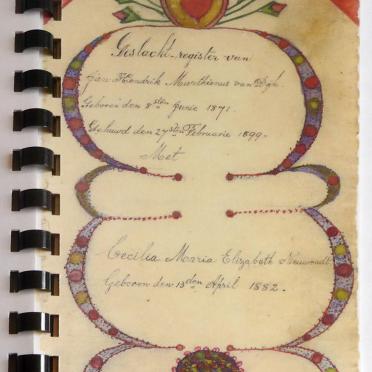 Geslacht-register van
Jan Hendrik van Dyk
Geboren den 8ste Junie 1871.
Gehuwd den 27sten Februarie 1899.
Met
Cecilia Maria Elizabeth
Geboren den 13den April 1882.